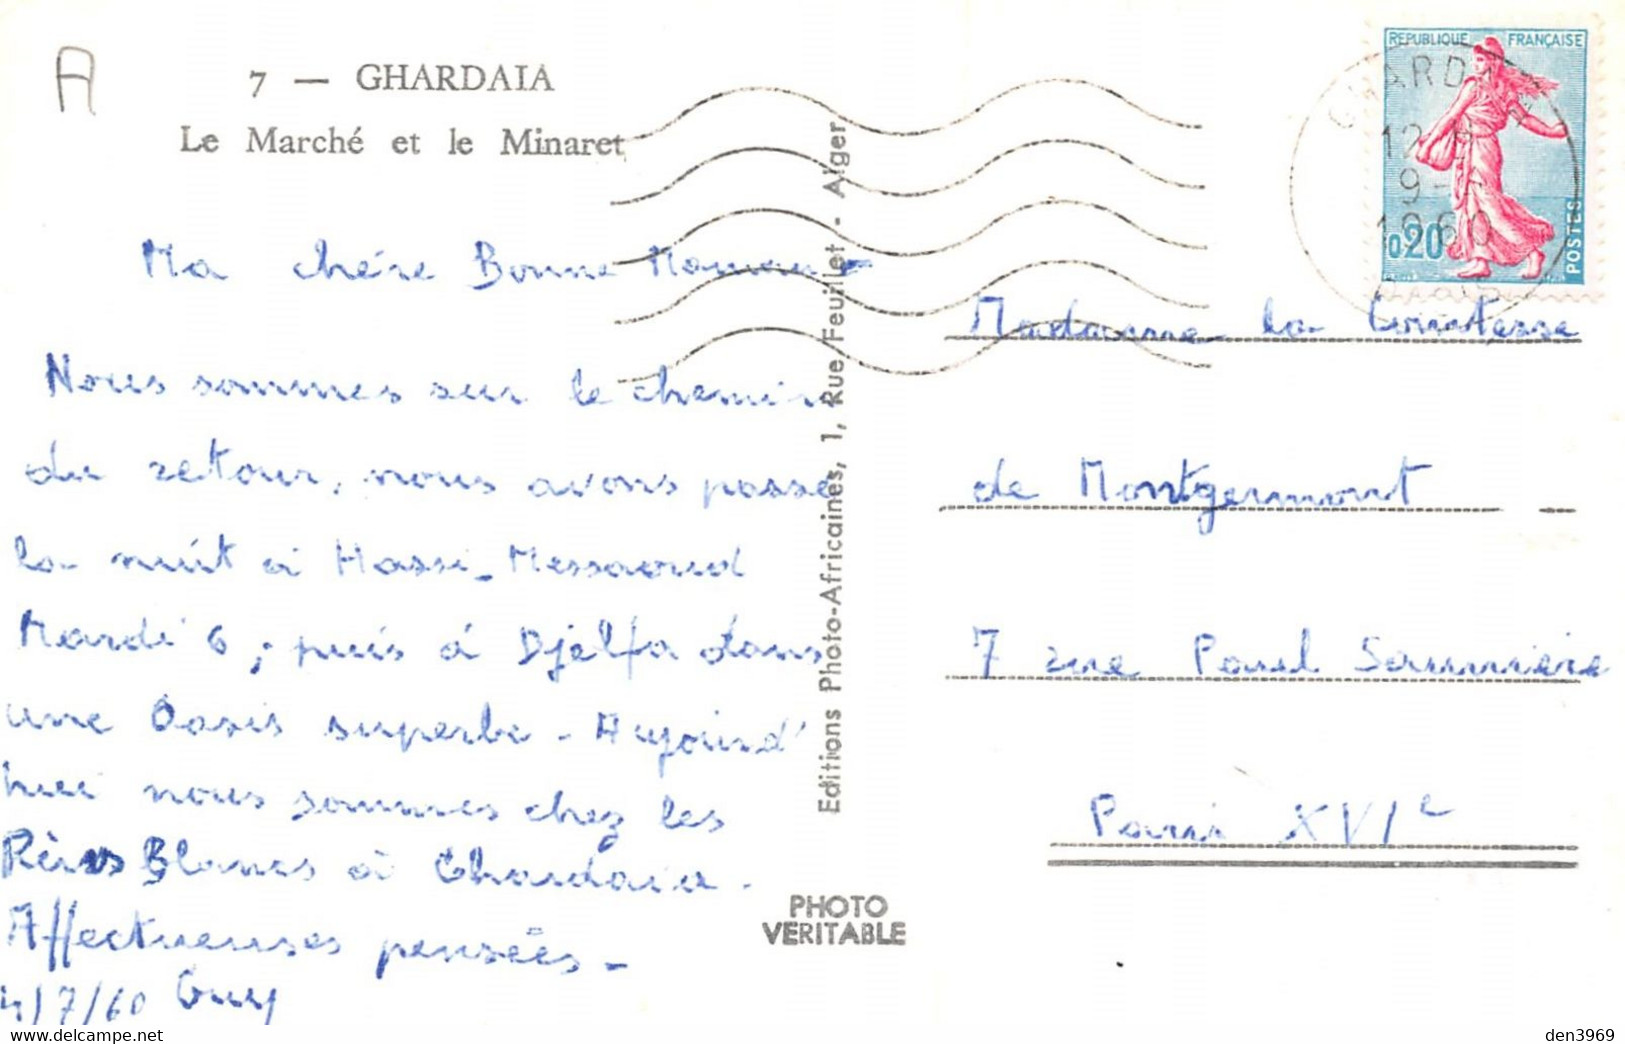 A
7 — GHARDAIA
Le Marché et le Minaret
Ma chère Bonne Maman -
Nous sommes sur le chemin
du retour, nous avons passé
la nuit à Hassi-Messaoud
Mardi 6, puis à Djelfa dans
une Oasis superbe - Aujourd'
hui nous sommes chez les
Pères Blancs à Ghardaia -
Affectueuses pensées -
4/7/60 Guy
Editions Photo-Africaines, 1, Rue Feuillet - Alger
PHOTO
VERITABLE
REPUBLIQUE FRANÇAISE
0,20
POSTES
GHARDAIA
12 H
9-7
1960
OASIS
Madame la Comtesse
de Montgermont
7 rue Paul Saunière
Paris XVIe
den3969